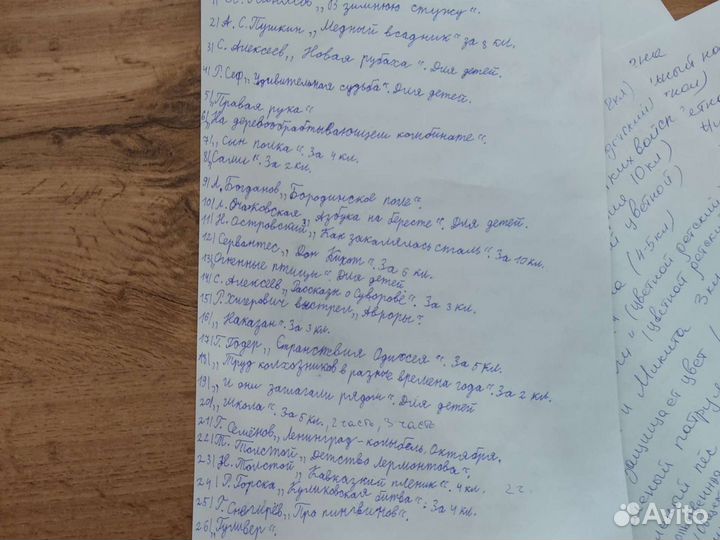 „В зимнюю стужу“.
2) А. С. Пушкин „Медный всадник“ за 8 кл.
3) С. Алексеев „Новая рубаха“. Для детей.
4) Р. Сеф „Удивительная судьба“. Для детей.
5) „Правая рука“
6) „На деревообрабатывающем комбинате“.
7) „Сын полка“. За 4 кл.
8) „Сами“. За 2 кл.
9) А. Богданов „Бородинское поле“.
10) Л. Очаковская „Азбука на бересте“. Для детей.
11) Н. Островский „Как закалялась сталь“. За 10 кл.
12) Сервантес „Дон Кихот“. За 6 кл.
13) „Огненные птицы“. Для детей
14) С. Алексеев „Рассказы о Суворове“. За 3 кл.
15) Р. Хигерович выстрел „Авроры“.
16) „Наказан“. За 3 кл.
17) Г. Годер „Странствия Одиссея“. За 5 кл.
18) „Труд колхозников в разные времена года“. За 2 кл.
19) „И они зашагали рядом“. Для детей
20) „Школа“. За 5 кл., 2 часть, 3 часть
21) Г. Семёнов „Ленинград-колыбель Октября.
22) Т. Толстой „Детство Лермонтова“.
23) Н. Толстой „Кавказкий пленик“. 4 кл. 2 ч.
24) Р. Горска „Куликовская битва“. За 4 кл.
25) Г. Снегирёв „Про пингвинов“.
26) „Гуливер“.
кл)
10 кл)
цветной)
(4-5 кл)
(цветной детский
(цветной
и Микита 3 кл
защищает цвет
патрул
пёс
Avito